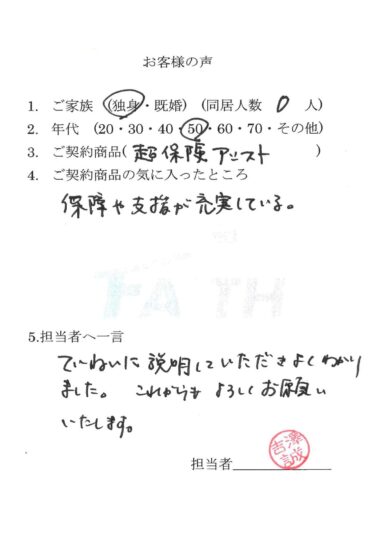 お客様の声
1. ご家族 (独身・既婚) (同居人数 0 人)
2. 年代 (20・30・40・50・60・70・その他)
3. ご契約商品(超保険アシスト)
4. ご契約商品の気に入ったところ
保障や支援が充実している。
FAITH
5.担当者へ一言
ていねいに説明していただきよくわかり
ました。 これからも よろしくお願い
いたします。
担当者
吉澤誠